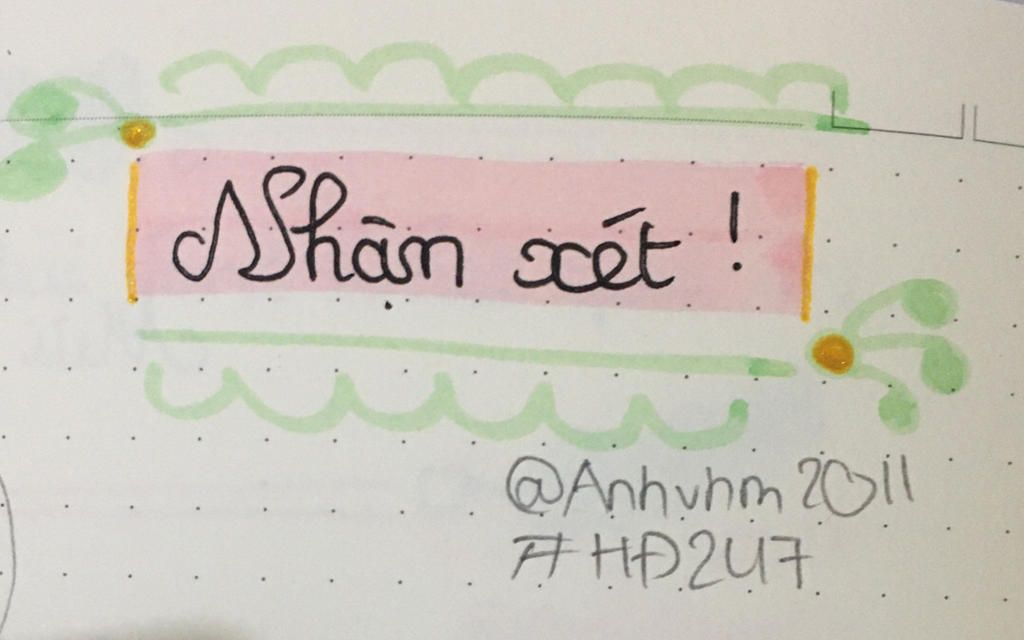 Nhận xét !
@Anhvhm2011
#HĐ247